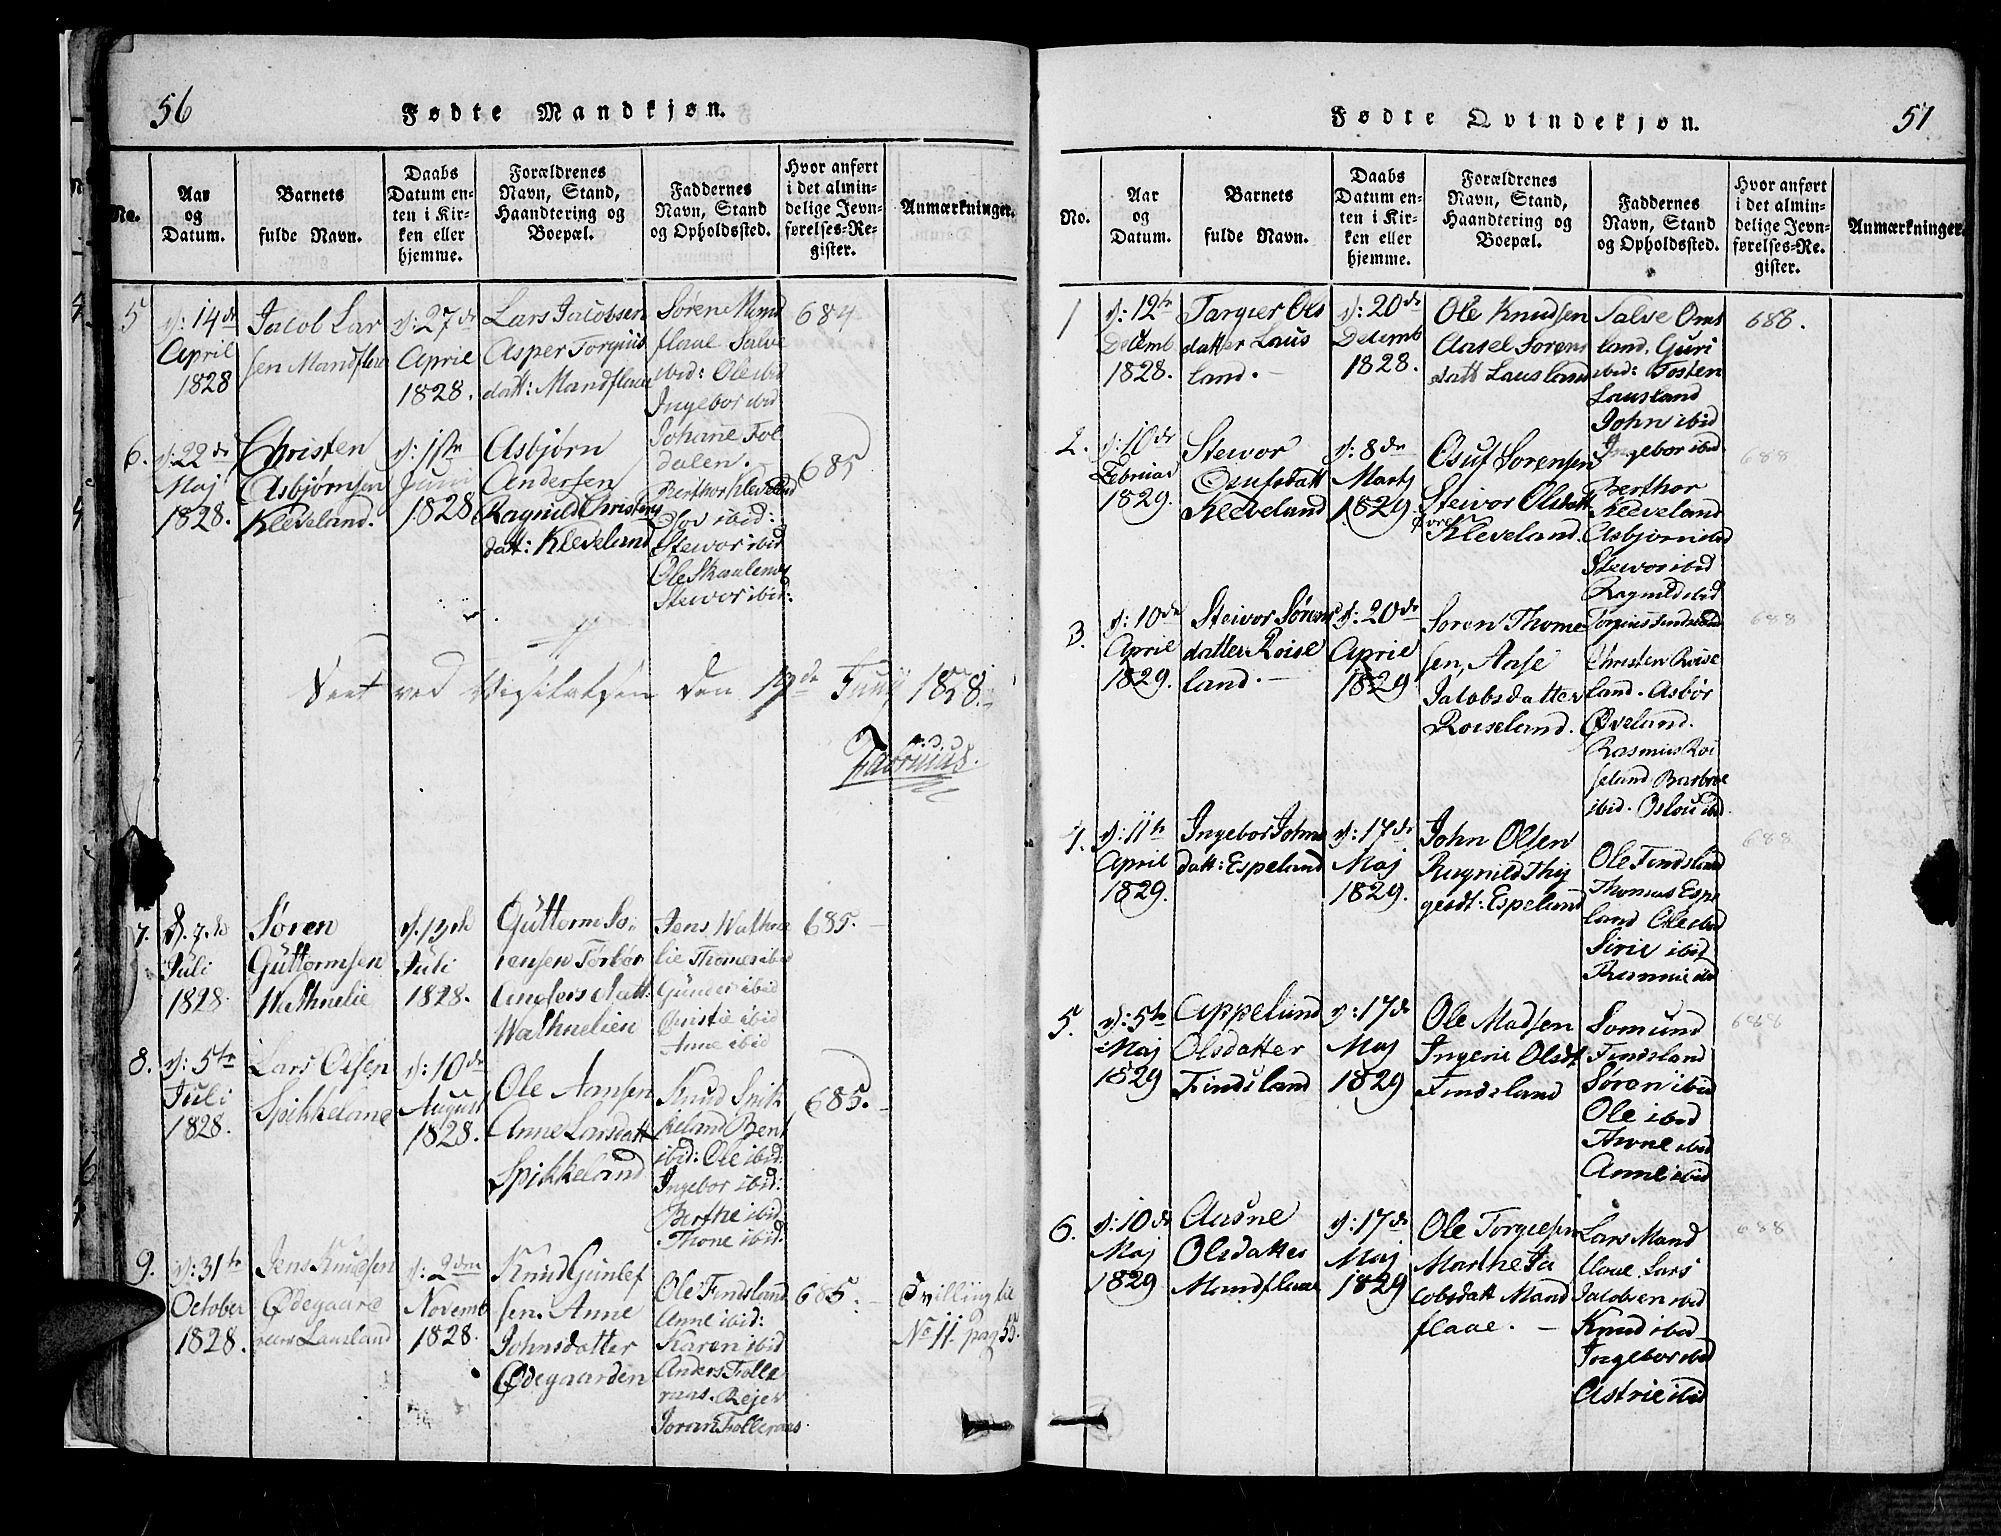 56
Fødte Mandkjøn.
No.
Aar
og
Datum.
Barnets
fulde Navn.
Daabs
Datum en-
ten i Kir-
ken eller
hjemme.
Forældrenes
Navn, Stand,
Haandtering og
Boepæl.
Faddernes
Navn, Stand
og Opholdssted.
Hvor anført
i det almin-
delige Jevn-
førelses-Re-
gister.
Anmærkninger.
5
d: 14de
April
1828
Jacob Lar
sen Mandflaae
d: 27de
April
1828.
Lars Jacobsen
Asper Torgiis
datt: Mandflaae
Sørene Mand
flaae Salve
ibid: Ole ibid
Ingebor ibid
Johane Fol
dalen.
684
6.
d: 22de
Maj
1828.
Christen
Asbjørnsen
Kleveland.
d: 1ste
Juni
1828
Asbjørn
Andersen
Ragnild Christens
datt: Kleveland
Berthor Kleveland
Osov ibid:
Steivor ibid
Ole Skaulemoj
Steivor ibid:
685
Seet ved Visitatsen den 19de Junij 1828.
Fabricius.
7.
d. 7de
Juli
1828.
Søren
Guttormsen
Wathnelie
d. 13de
Juli
1828.
Guttorm So-
rensen Torbor
Anders datt:
Wathnelien
Jens Wathne
lie Thomes ibid
Gunder ibid
Christie ibid
Anne ibid
685.
8.
d: 5te
Juli
1828.
Lars Olsen
Spikkeland
d: 10de
August
1828.
Ole Aansen
Anne Larsdatt
Spikkeland
Knud Spik
keland Bent
ibid: Ole ibid:
Ingebor ibid:
Berthe ibid
Thone ibid:
685.
9.
d: 31te
October
1828.
Jens Knudsen
Ødegaard
Lausland
d: 2den
Novemb
1828.
Knud Gunlef
sen. Anne
Johnsdatter
Ødegaarden
Ole Findsland
Anne ibid:
Karen ibid
Anders Tolle
raas. Rejer
Joran Tolleraas.
685.
Tvilling til
No 11. pag 55.
57
Fødte Qvindekjøn.
No.
Aar
og
Datum.
Barnets
fulde Navn.
Daabs
Datum en-
ten i Kir-
ken eller
hjemme.
Forældrenes
Navn, Stand,
Haandtering og
Boepæl.
Faddernes
Navn, Stand
og Opholdssted.
Hvor anført
i det almin-
delige Jevn-
førelses-Re-
gister.
Anmærkninger.
1
d: 12te
Decemb
1828.
Targier Ols
datter Laus
land.
d: 20de
Decemb
1828.
Ole Knudsen
Aasel Sorens
datt Lausland
Salve Oms
land. Guri
ibid: Tosten
Lausland
John ibid
Ingebor ibid
688.
2.
d: 10de
Februar
1829.
Steivor
Osufsdatt
Kleveland
d: 8de
Marts
1829
Osuf Sorensen
Steivor Olsdatt
Øvre
Kleveland.
Berthor
Kleveland
Asbjørn ibid
Steivor ibid
Ragnild ibid
688
3.
d: 10de
April
1829.
Steivor Sørens
datter Roise
land.
d: 20de
April
1829
Soren Thome
sen, Aase
Jacobsdatter
Roiseland.
Torgius Findsland
Christen Roise
land. Asbør
Øveland.
Rasmus Roi
seland Barbroe
ibid. Oslou ibid.
688
4.
d: 11te
April
1829.
Ingebor Johns
datt: Espeland
d: 17de
Maj
1829.
John Olsen
Ragnild Thij
gesdt: Espeland
Ole Findsland
Thomas Espe
land Ole ibid
Sirie ibid
Rasmus ibid
688
5.
d: 5te
Maj
1829
Appelund
Olsdatter
Findsland
d: 17de
Maj
1829
Ole Madsen
Ingerie Olsdt
Findsland
Somund
Findsland
Søren ibid
Ole ibid
Thone ibid
Anne ibid
688
6.
d: 10de
Maj
1829
Aasne
Olsdatter
Mandflaae
d: 17de
Maj
1829
Ole Torgiesen
Marthe Ja
cobsdatt Mand
flaae.
Lars Mand
flaae. Lars
Jacobsen ibid
Knud ibid
Ingebor ibid
Astrie ibid
688